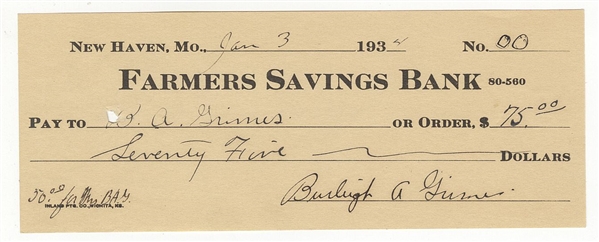 NEW HAVEN, MO., Jan 3 1934 No. 00
FARMERS SAVINGS BANK 80-560
PAY TO W. A. Grimes. OR ORDER, $ 75.00
Seventy Five DOLLARS
50.00 for Mrs B.A.G. Burleigh A Grimes.
INLAND PTG. CO., WICHITA, KS.